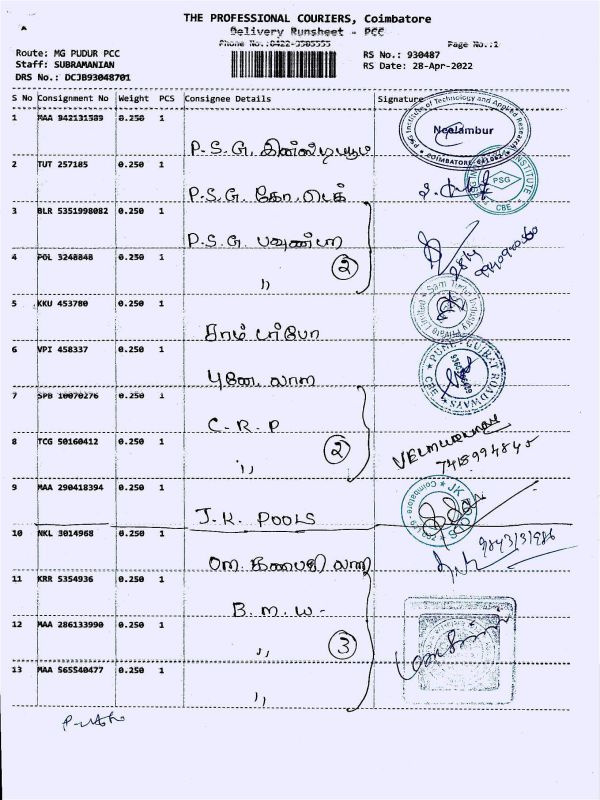 THE PROFESSIONAL COURIERS, Coimbatore
Delivery Runsheet - PCC
Phone No.:0422-3505555 Page No.:1
Route: MG PUDUR PCC RS No.: 930487
Staff: SUBRAMANIAN RS Date: 28-Apr-2022
DRS No.: DCJB93048701
S No Consignment No Weight PCS Consignee Details Signature
PSG Institute of Technology and Applied Research
Neelambur
1 MAA 942131589 0.250 1
P.S.G.
2 TUT 257185 0.250 1
P.S.G. கோ.டெக்
PSG
CBE
3 BLR 5351998082 0.250 1
P.S.G. பவுண்டரி
4 POL 3248848 0.250 1
" 2
5 KKU 453780 0.250 1
சாம் டர்போ
6 VPI 458337 0.250 1
புனே. லாரி
ROADWAYS
CBE
7 SPB 10070276 0.250 1
C.R.P
8 TCG 50160412 0.250 1
" 2
7418994845
9 MAA 290418394 0.250 1
J.K. POOLS
JK
10 NKL 3014968 0.250 1
ஓம். கணபதி லாரி
9843131986
11 KRR 5354936 0.250 1
B.M.W-
12 MAA 286133990 0.250 1
" 3
13 MAA 565540477 0.250 1
"